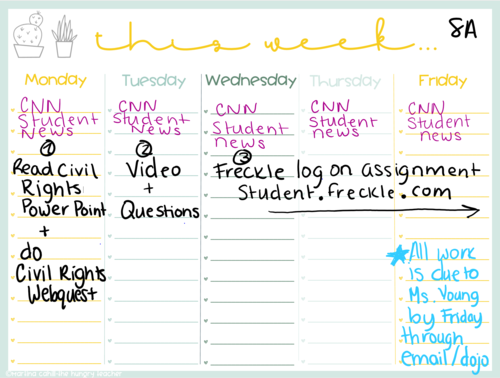 this week...
8A
Monday
CNN
Student
News
①
Read Civil
Rights
PowerPoint
+
do
Civil Rights
Webquest
Tuesday
CNN
Student
News
②
Video
+
Questions
Wednesday
CNN
Student
news
③
Freckle log on assignment
Student.freckle.com
Thursday
CNN
Student
news
Friday
CNN
Student
news
★All work
is due to
Ms. Young
by Friday
through
email/dojo
the hungry teacher